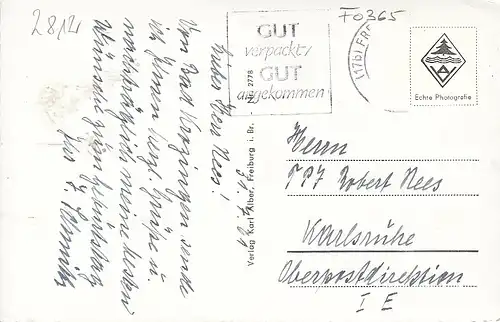 2812
GUT
verpackt,
GUT
angekommen
(17b) FR
F0365
Echte Photografie
Lieber Herr Nees!
Von Bad Krozingen sende
ich Ihnen
nachträglich meine besten
Wünsche zum Geburtstag
Ihr
Verlag Karl Alber, Freiburg i. Br.
2778
Herrn
TPI Robert Nees
Karlsruhe
Oberpostdirektion
I E